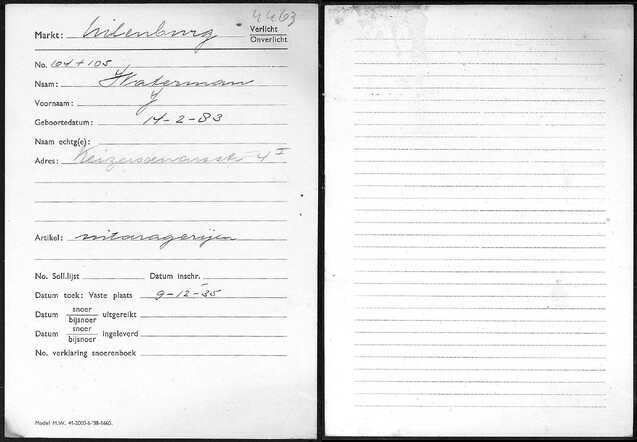 4463
Markt: Uilenburg Verlicht
Onverlicht
No. 64 + 105
Naam: Waterman
Voornaam: J
Geboortedatum: 14-2-83
Naam echtg(e):
Adres: Keizersdwarsstr 4 I
Artikel: vitaragerijen
No. Soll.lijst Datum inschr.
Datum toek: Vaste plaats 9-12-35
Datum snoer/bijsnoer uitgereikt
Datum snoer/bijsnoer ingeleverd
No. verklaring snoerenboek
Model M.W. 41-2000-6-'38-1660.